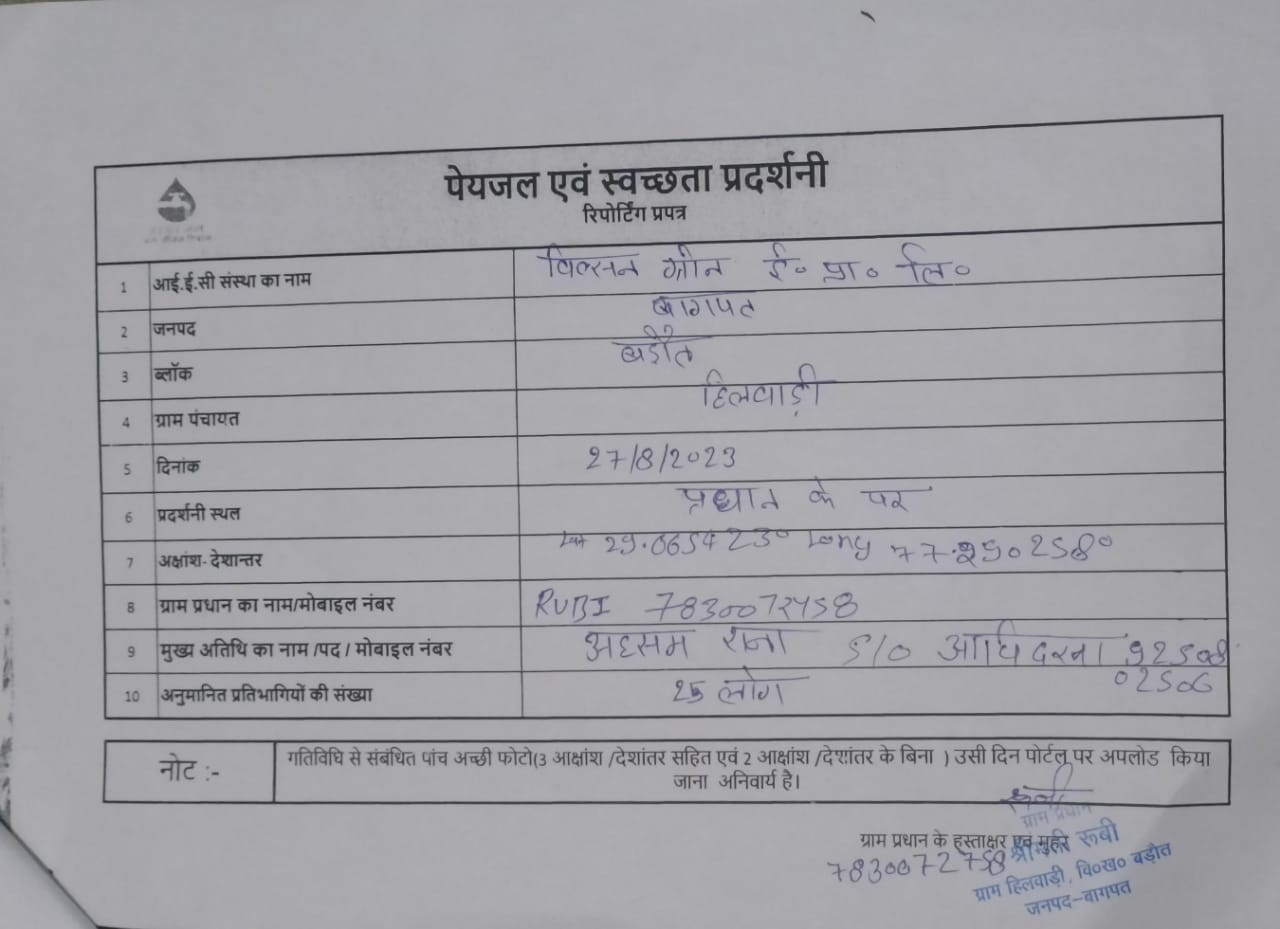 पेयजल एवं स्वच्छता प्रदर्शनी
रिपोर्टिंग प्रपत्र
1 आई.ई.सी संस्था का नाम विल्सन ग्रीन ई० प्रा० लि०
2 जनपद बागपत
3 ब्लॉक बड़ौत
4 ग्राम पंचायत हिलवाड़ी
5 दिनांक 27/8/2023
6 प्रदर्शनी स्थल प्रधान के पर
7 अक्षांश- देशान्तर Lat 29.065423° Long 77.290258°
8 ग्राम प्रधान का नाम/मोबाइल नंबर RUBI
9 मुख्य अतिथि का नाम /पद / मोबाइल नंबर अहसम राना S/O 92508
02506
10 अनुमानित प्रतिभागियों की संख्या 25 लोग
नोट :- गतिविधि से संबंधित पांच अच्छी फोटो(3 आक्षांश /देशांतर सहित एवं 2 आक्षांश /देशांतर के बिना ) उसी दिन पोर्टल पर अपलोड किया
जाना अनिवार्य है।
रूबी
ग्राम प्रधान
ग्राम प्रधान के हस्ताक्षर एवं मुहर
रूबी
7830072758
ग्राम हिलवाड़ी, वि०ख० बड़ौत
जनपद-बागपत